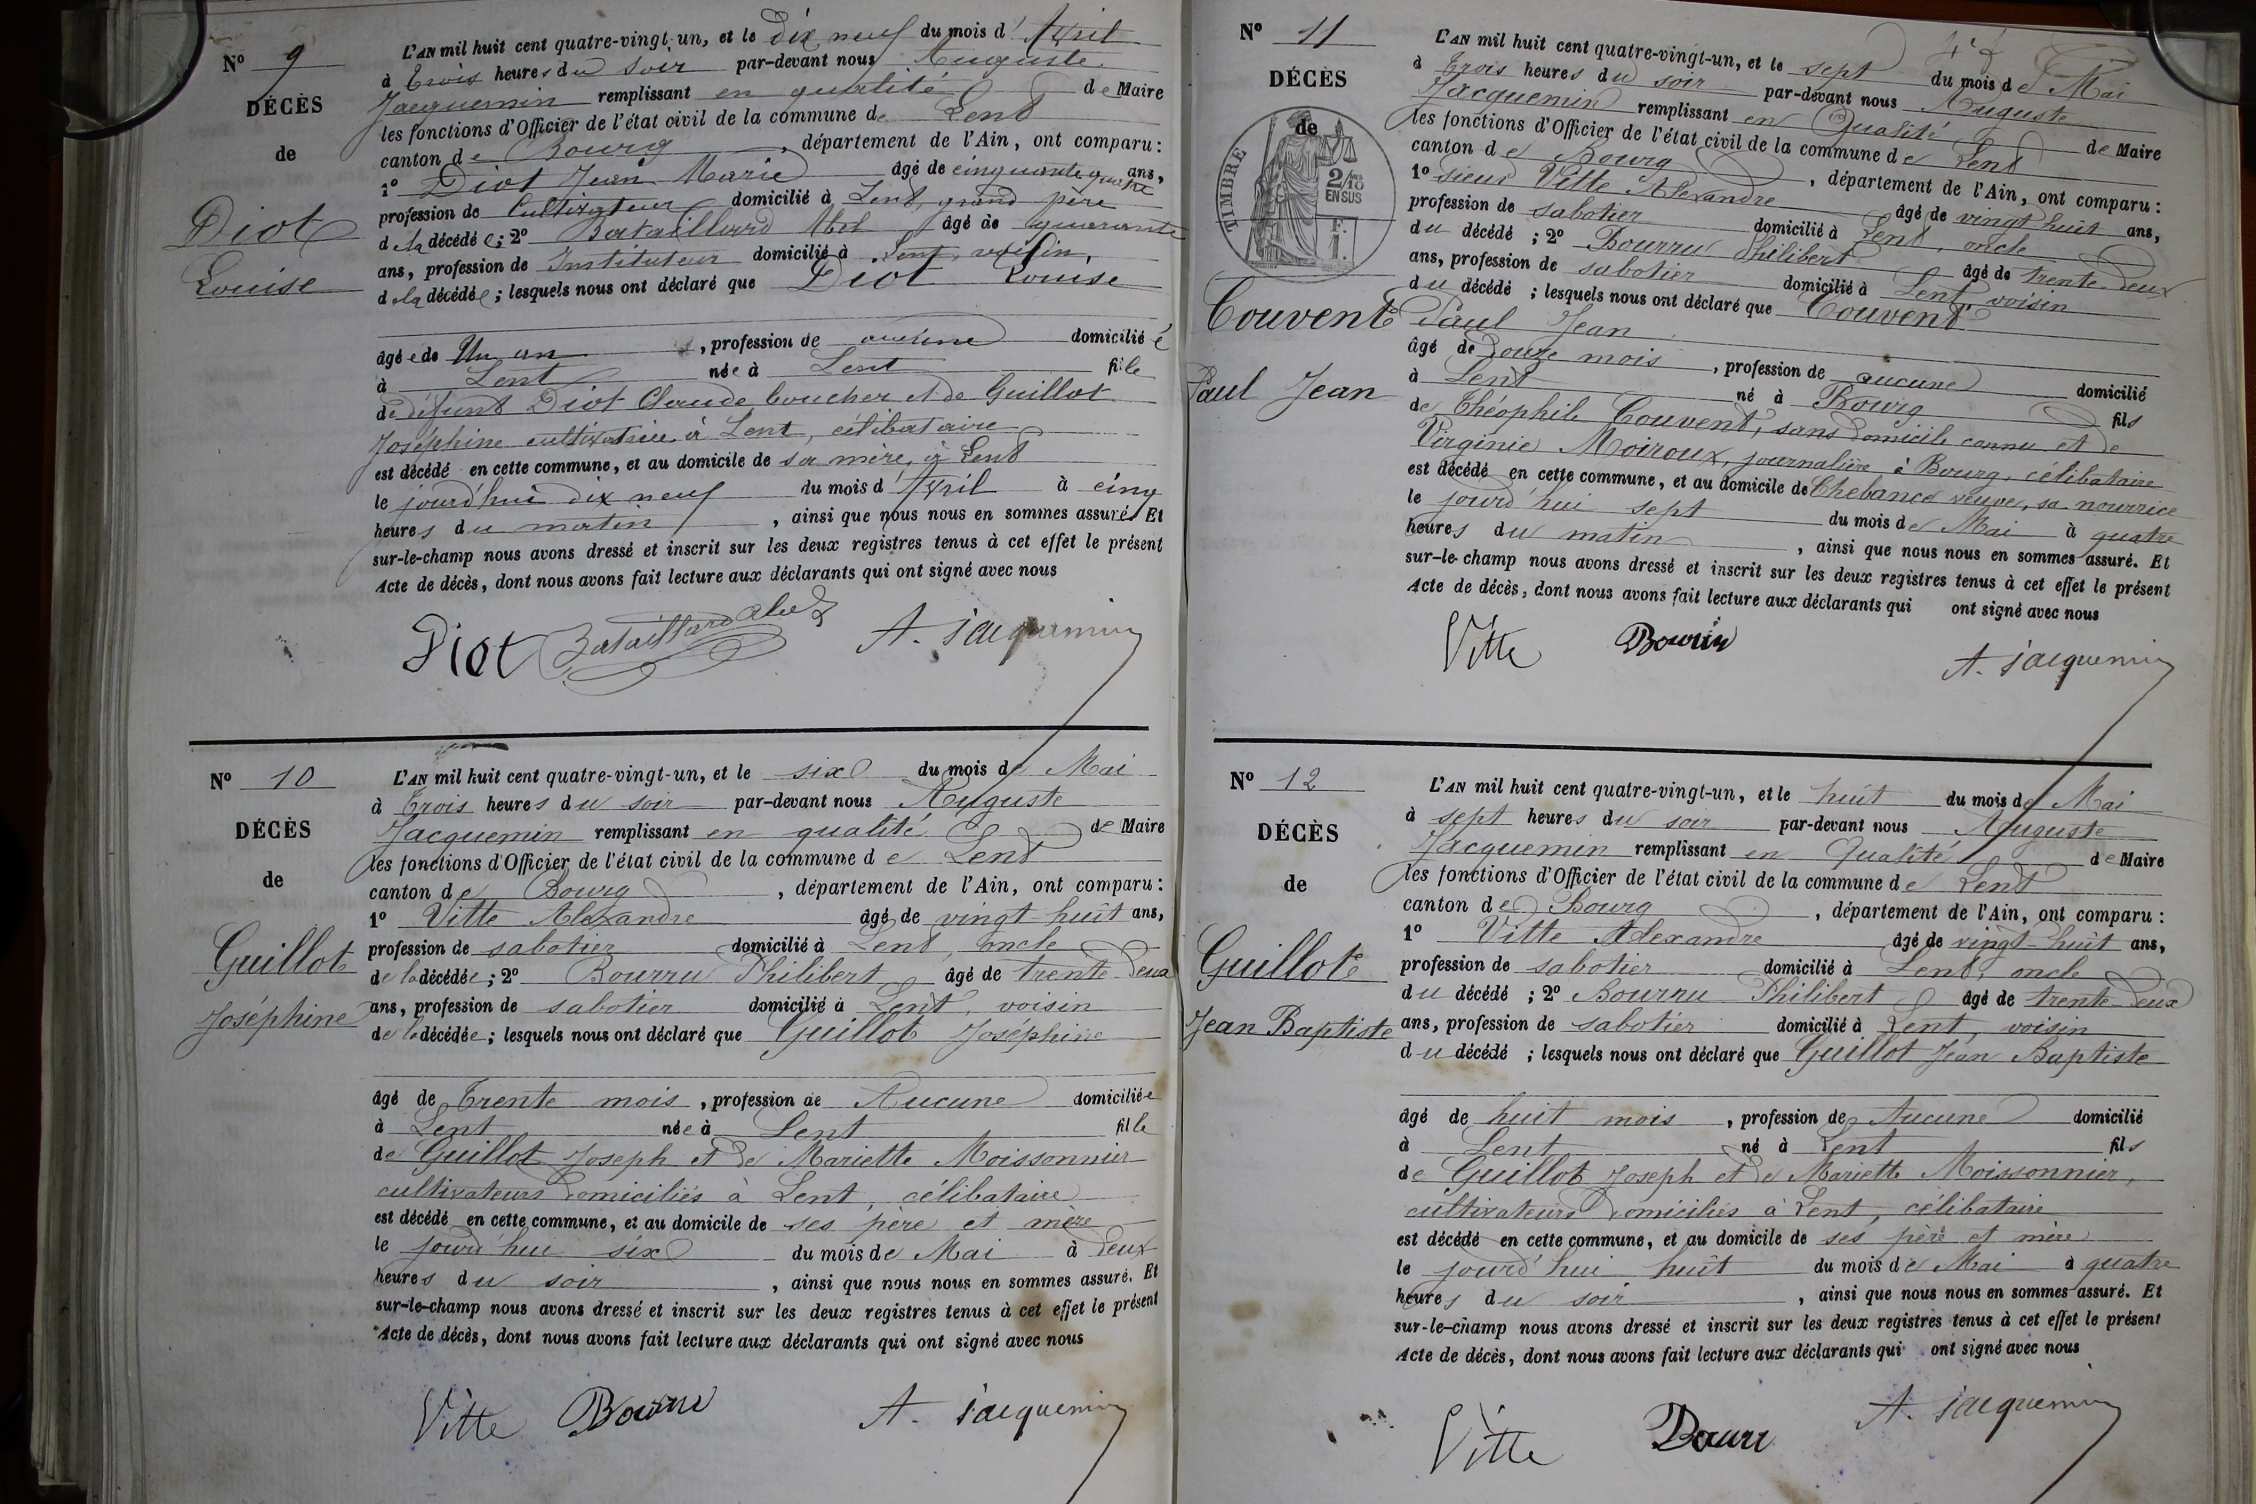 Nº 9
DÉCÈS
de
Diot
Louise
L'AN mil huit cent quatre-vingt-un, et le dix neuf du mois d'Avril
à trois heures du soir par-devant nous Auguste
Jacquemin remplissant en qualité de Maire
les fonctions d'Officier de l'état civil de la commune de Lent
canton de Bourg, département de l'Ain, ont comparu :
1º Diot Jean Marie âgé de cinquante quatre ans,
profession de Cultivateur domicilié à Lent, grand père
de la décédée ; 2º Bataillard Abel âgé de quarante
ans, profession de Instituteur domicilié à Lent, voisin,
de la décédée ; lesquels nous ont déclaré que Diot Louise
âgée de Un an, profession de aucune domicilié e
à Lent née à Lent fille
de défunt Diot Claude boucher et de Guillot
Joséphine cultivatrice à Lent, célibataire
est décédé en cette commune, et au domicile de sa mère, à Lent
le jourd'hui dix neuf du mois d'Avril à cinq
heures du matin, ainsi que nous nous en sommes assuré. Et
sur-le-champ nous avons dressé et inscrit sur les deux registres tenus à cet effet le présent
Acte de décès, dont nous avons fait lecture aux déclarants qui ont signé avec nous
Diot Bataillard Abel A. Jacquemin
Nº 10
DÉCÈS
de
Guillot
Joséphine
L'AN mil huit cent quatre-vingt-un, et le six du mois de Mai
à trois heures du soir par-devant nous Auguste
Jacquemin remplissant en qualité de Maire
les fonctions d'Officier de l'état civil de la commune de Lent
canton de Bourg, département de l'Ain, ont comparu :
1º Vitte Alexandre âgé de vingt huit ans,
profession de sabotier domicilié à Lent, oncle
de la décédée ; 2º Bourru Philibert âgé de trente deux
ans, profession de sabotier domicilié à Lent, voisin
de la décédée ; lesquels nous ont déclaré que Guillot Joséphine
âgé de Trente mois, profession de Aucune domiciliée
à Lent née à Lent fille
de Guillot Joseph et de Mariette Moissonnier
cultivateurs domiciliés à Lent, célibataire
est décédé en cette commune, et au domicile de ses père et mère
le jourd'hui six du mois de Mai à deux
heures du soir, ainsi que nous nous en sommes assuré. Et
sur-le-champ nous avons dressé et inscrit sur les deux registres tenus à cet effet le présent
Acte de décès, dont nous avons fait lecture aux déclarants qui ont signé avec nous
Vitte Bourru A. Jacquemin
Nº 11
DÉCÈS
de
TIMBRE
2/10 EN SUS
F. 1.
Couvent
Paul Jean
L'AN mil huit cent quatre-vingt-un, et le sept du mois de Mai
à trois heures du soir par-devant nous Auguste
Jacquemin remplissant en Qualité de Maire
les fonctions d'Officier de l'état civil de la commune de Lent
canton de Bourg, département de l'Ain, ont comparu :
1º sieur Vitte Alexandre âgé de vingt huit ans,
profession de sabotier domicilié à Lent, oncle
du décédé ; 2º Bourru Philibert âgé de trente deux
ans, profession de sabotier domicilié à Lent, voisin
du décédé ; lesquels nous ont déclaré que Couvent
Paul Jean
âgé de douze mois, profession de aucune domicilié
à Lent né à Bourg fils
de Théophile Couvent, sans domicile connu et de
Virginie Moiroux, journalière à Bourg, célibataire
est décédé en cette commune, et au domicile de Chebance veuve, sa nourrice
le jourd'hui sept du mois de Mai à quatre
heures du matin, ainsi que nous nous en sommes assuré. Et
sur-le-champ nous avons dressé et inscrit sur les deux registres tenus à cet effet le présent
Acte de décès, dont nous avons fait lecture aux déclarants qui ont signé avec nous
Vitte Bourru A. Jacquemin
Nº 12
DÉCÈS
de
Guillot
Jean Baptiste
L'AN mil huit cent quatre-vingt-un, et le huit du mois de Mai
à sept heures du soir par-devant nous Auguste
Jacquemin remplissant en Qualité de Maire
les fonctions d'Officier de l'état civil de la commune de Lent
canton de Bourg, département de l'Ain, ont comparu :
1º Vitte Alexandre âgé de vingt-huit ans,
profession de sabotier domicilié à Lent, oncle
du décédé ; 2º Bourru Philibert âgé de trente-deux
ans, profession de sabotier domicilié à Lent, voisin
du décédé ; lesquels nous ont déclaré que Guillot Jean Baptiste
âgé de huit mois, profession de Aucune domicilié
à Lent né à Lent fils
de Guillot Joseph et de Mariette Moissonnier,
cultivateurs domiciliés à Lent, célibataire
est décédé en cette commune, et au domicile de ses père et mère
le jourd'hui huit du mois de Mai à quatre
heures du soir, ainsi que nous nous en sommes assuré. Et
sur-le-champ nous avons dressé et inscrit sur les deux registres tenus à cet effet le présent
Acte de décès, dont nous avons fait lecture aux déclarants qui ont signé avec nous
Vitte Bourru A. Jacquemin